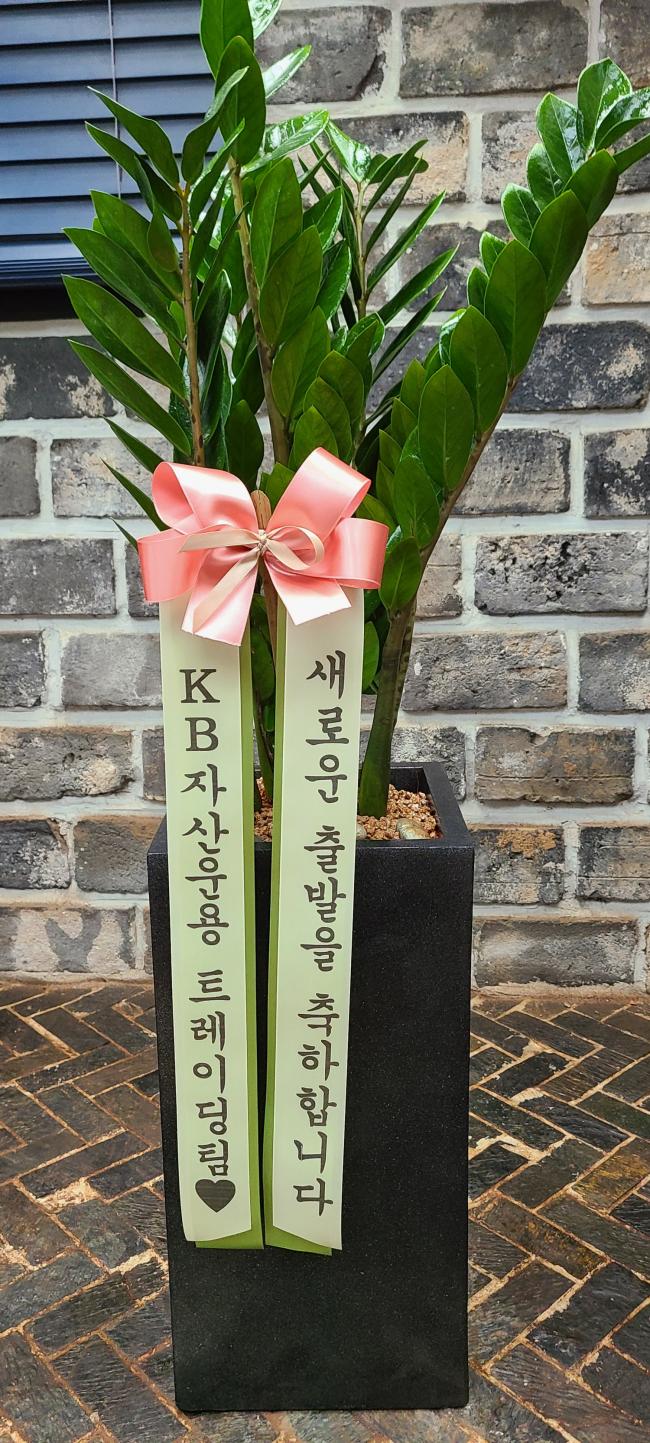 새로운 출발을 축하합니다
KB자산운용 트레이딩팀♥